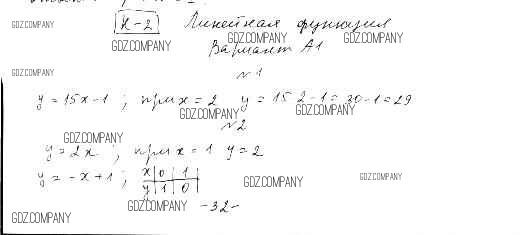 К-2 Линейная функция
GDZ.COMPANY
GDZ.COMPANY GDZ.COMPANY GDZ.COMPANY
Вариант А1
GDZ.COMPANY
№1
y = 15x - 1 ; при x = 2 y = 15·2-1 = 30-1 = 29
GDZ.COMPANY GDZ.COMPANY
№2
GDZ.COMPANY
y = 2x ; при x = 1 y = 2
y = -x + 1 ; x | 0 | 1
y | 1 | 0
GDZ.COMPANY GDZ.COMPANY
GDZ.COMPANY -32-
GDZ.COMPANY